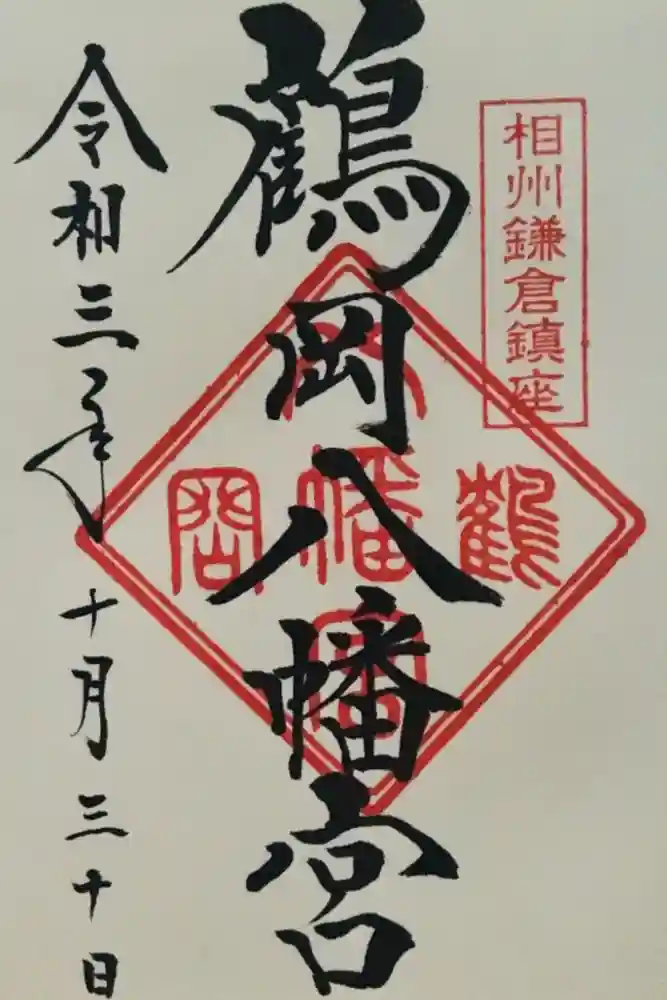 相州鎌倉鎮座
鶴岡八幡宮
鶴
八幡宮
岡
令和三年十月三十日